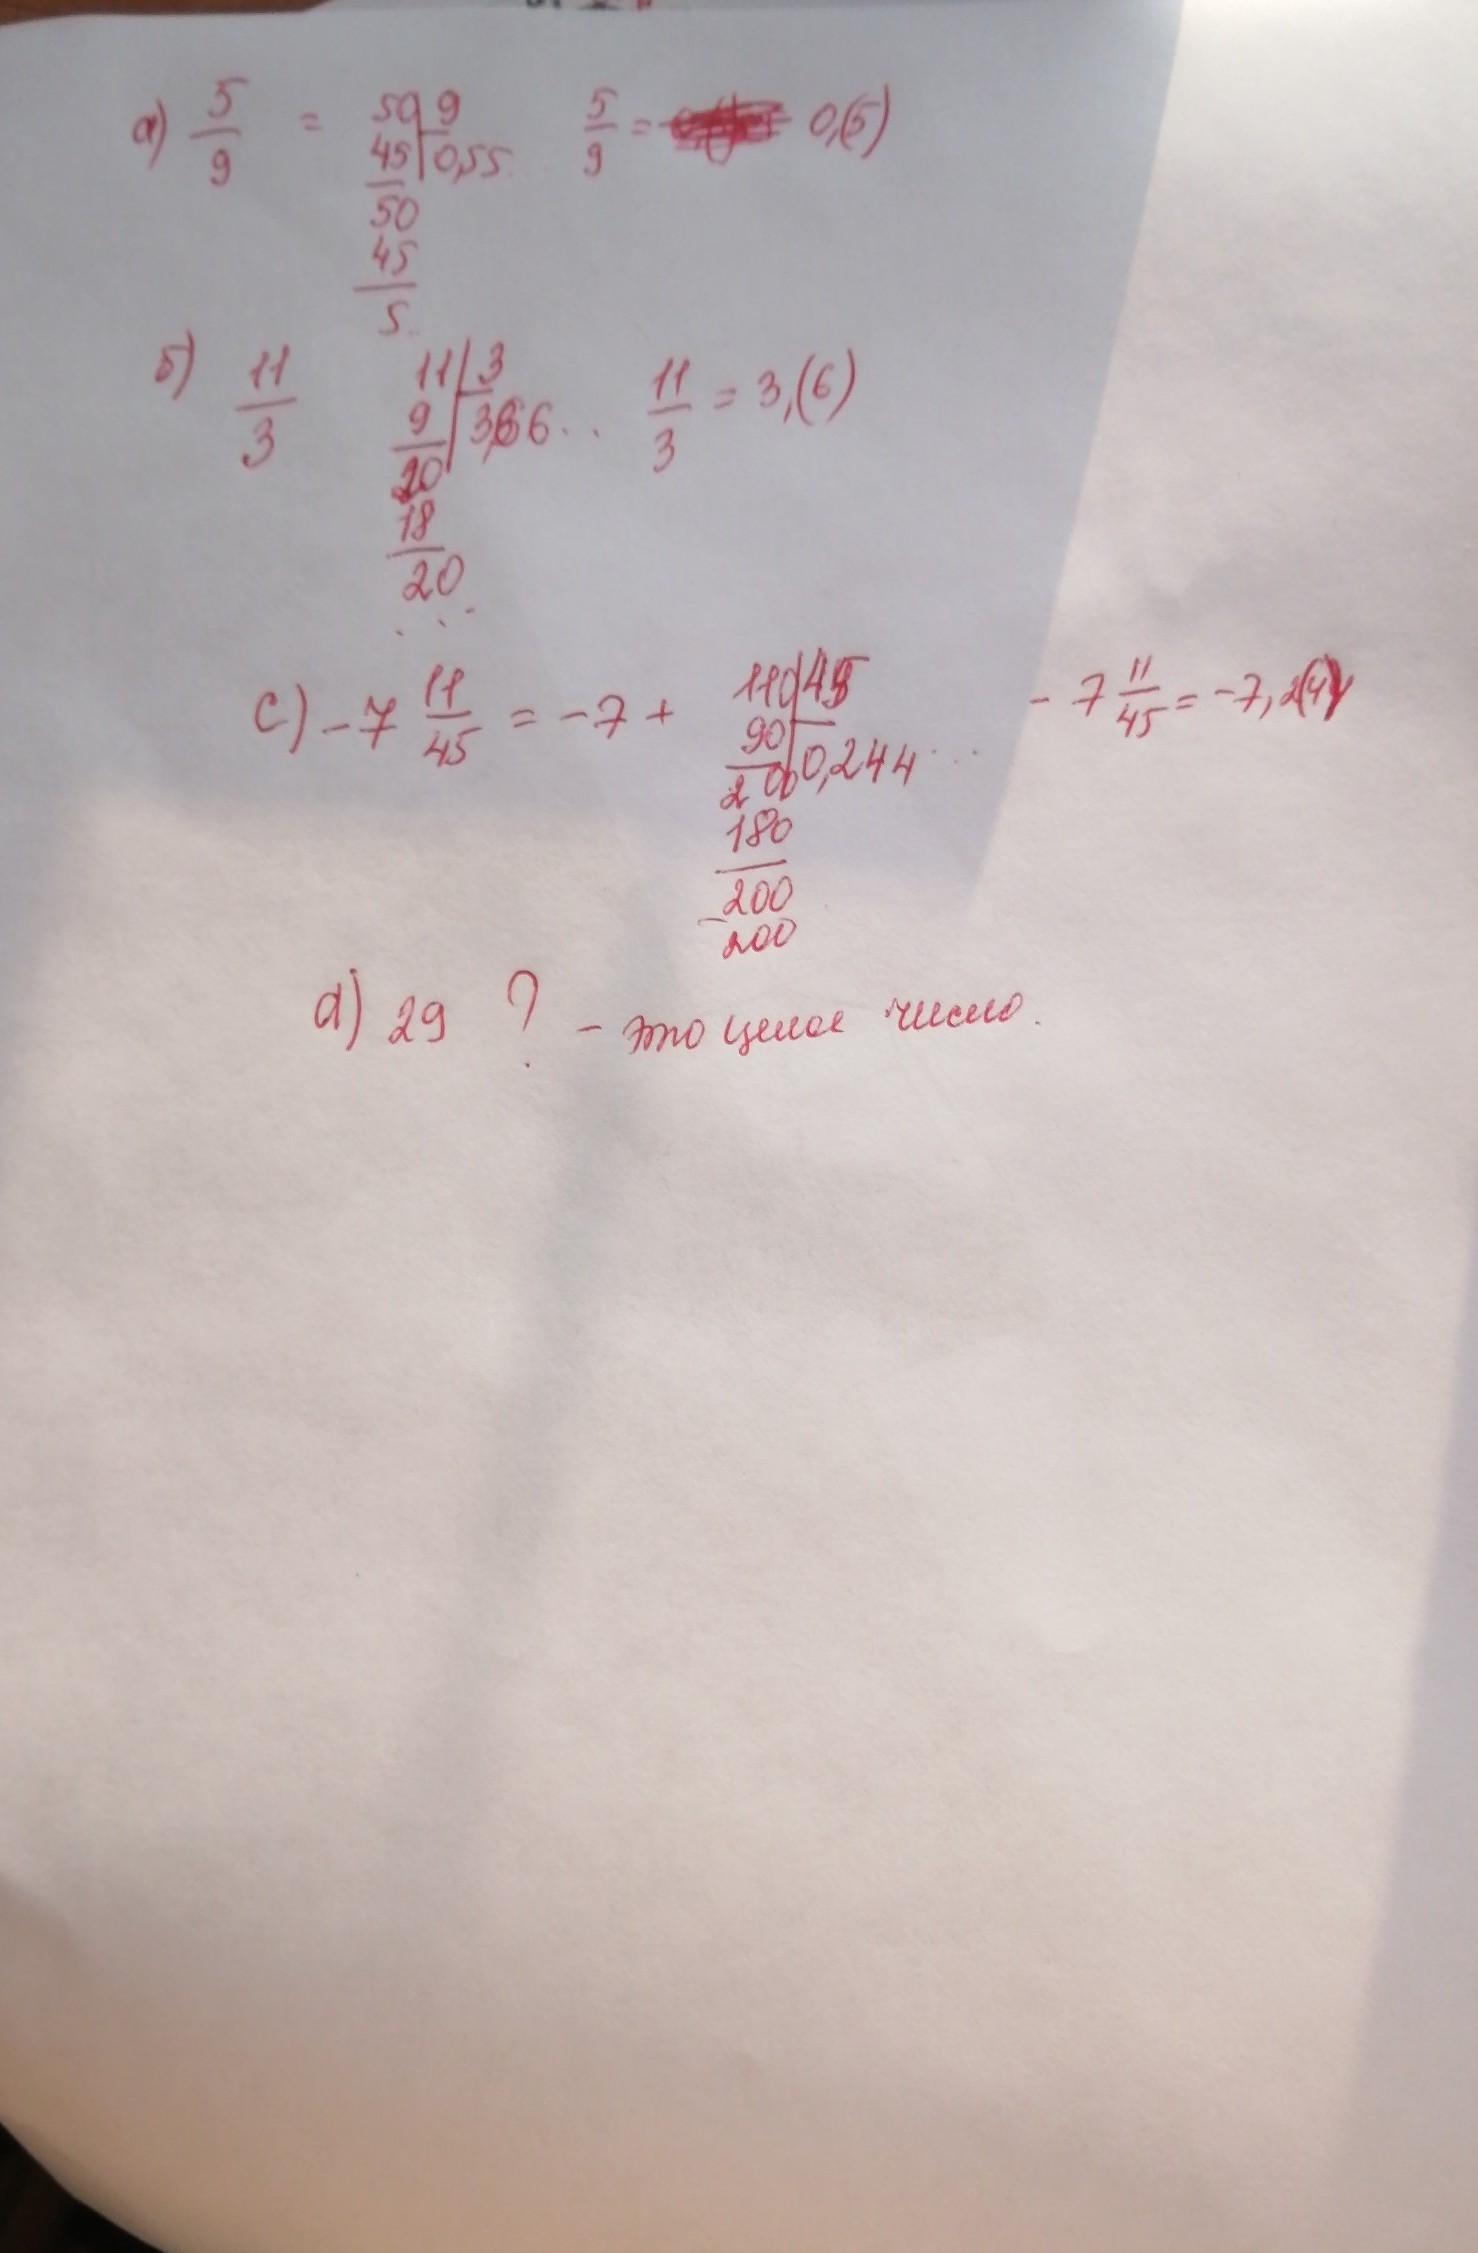 а) 5/9 = 50 | 9   5/9 = 0,(5)
45 | 0,55
50
45
5
б) 11/3   11 | 3   11/3 = 3,(6)
9 | 3,66...
20
18
20
...
c) -7 11/45 = -7 + 110 | 45   -7 11/45 = -7,2(4)
90 | 0,244...
200
180
200
-200
d) 29 ? - это целое число.